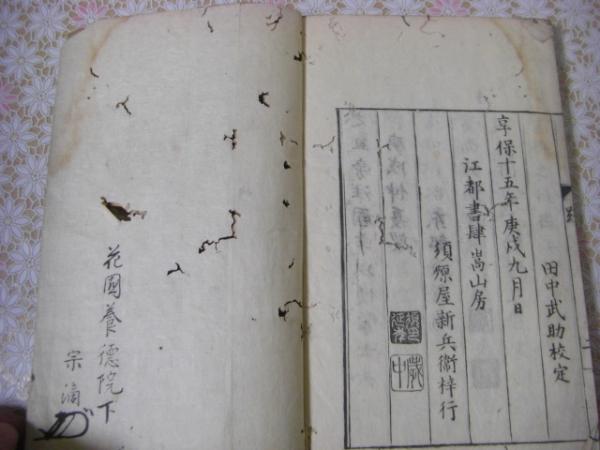 田中武助校定
享保十五年庚戌九月日
江都書肆嵩山房
須原屋新兵衛梓行
花園養德院下
宗